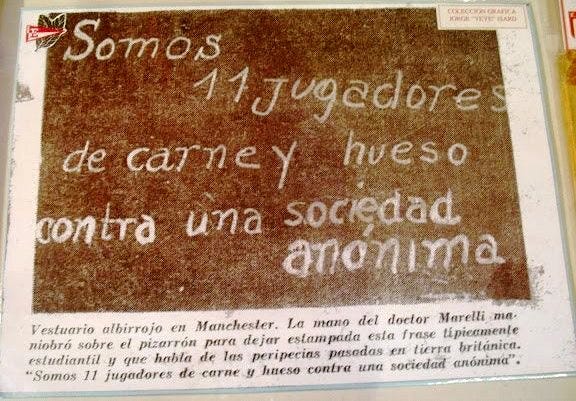 COLECCION GRAFICA
JORGE "YEYE" ISARD
Somos
11 jugadores
de carne y hueso
contra una sociedad
anónima
Vestuario albirrojo en Manchester. La mano del doctor Marelli ma-
niobró sobre el pizarrón para dejar estampada esta frase típicamente
estudiantil y que habla de las peripecias pasadas en tierra británica.
"Somos 11 jugadores de carne y hueso contra una sociedad anónima".